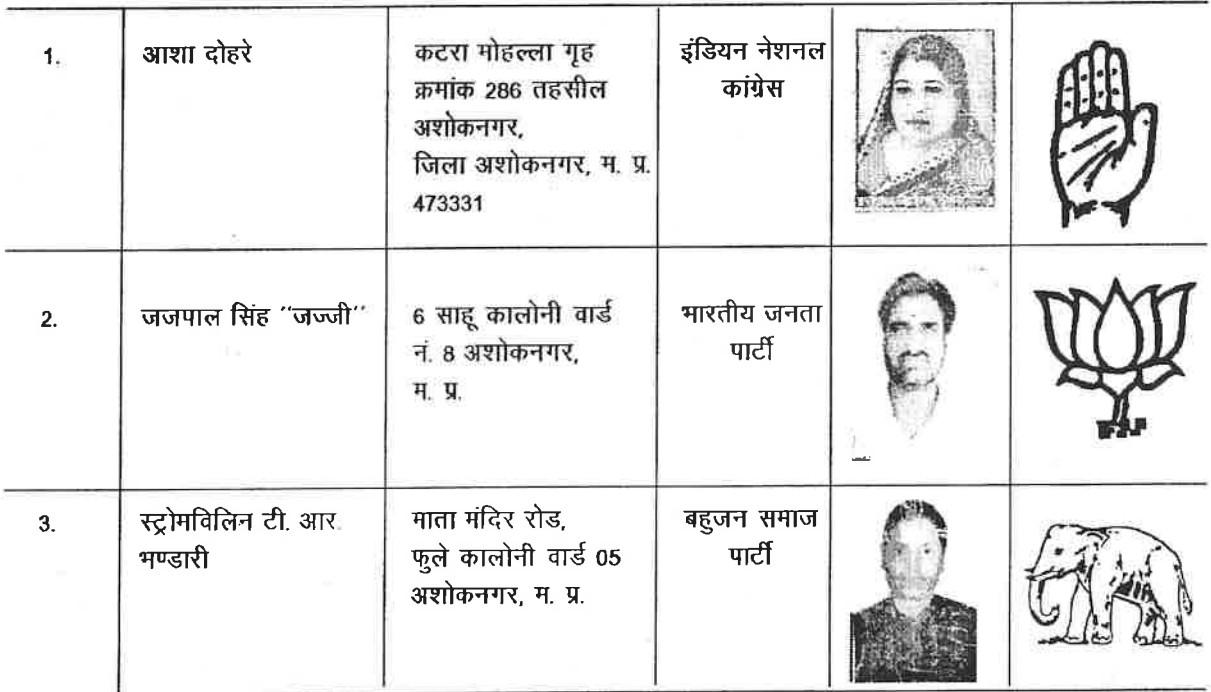 1.
आशा दोहरे
कटरा मोहल्ला गृह
क्रमांक 286 तहसील
अशोकनगर,
जिला अशोकनगर, म. प्र.
473331
इंडियन नेशनल
कांग्रेस
2.
जजपाल सिंह "जज्जी"
6 साहू कालोनी वार्ड
नं. 8 अशोकनगर,
म. प्र.
भारतीय जनता
पार्टी
3.
स्ट्रोमविलिन टी. आर.
भण्डारी
माता मंदिर रोड,
फुले कालोनी वार्ड 05
अशोकनगर, म. प्र.
बहुजन समाज
पार्टी